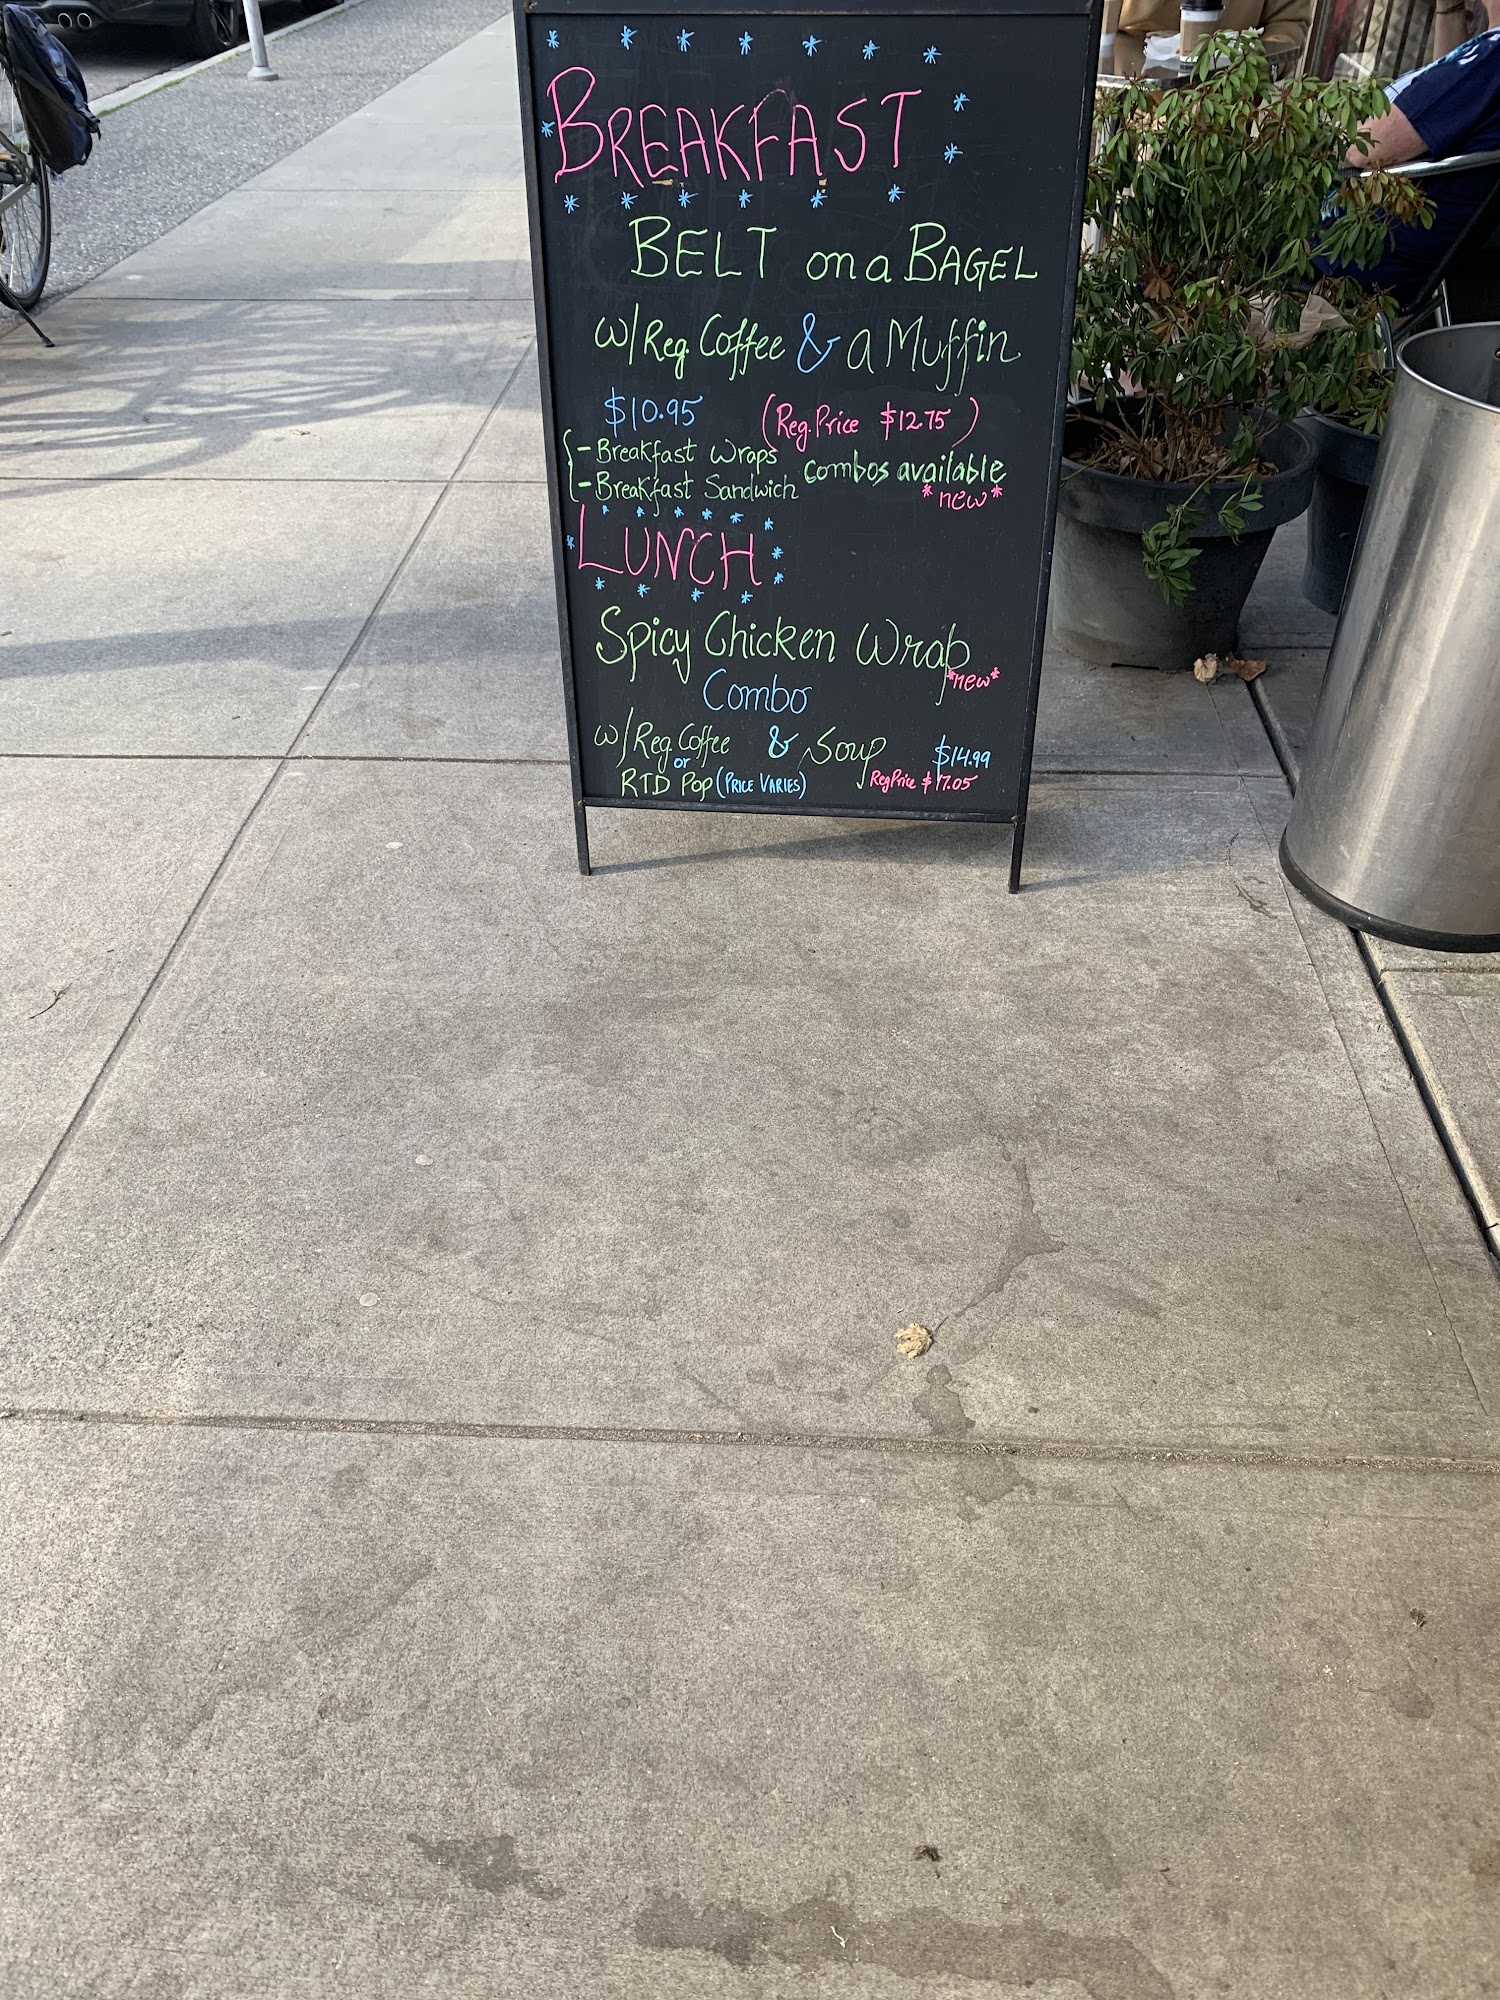 BREAKFAST
BELT on a BAGEL
w/Reg. Coffee & a Muffin
$10.95 (Reg. Price $12.75)
- Breakfast Wraps
- Breakfast Sandwich
combos available
*new*
LUNCH
Spicy Chicken Wrap
*new*
Combo
w/Reg. Coffee & Soup $14.99
or
RTD Pop (PRICE VARIES) Reg Price $17.05